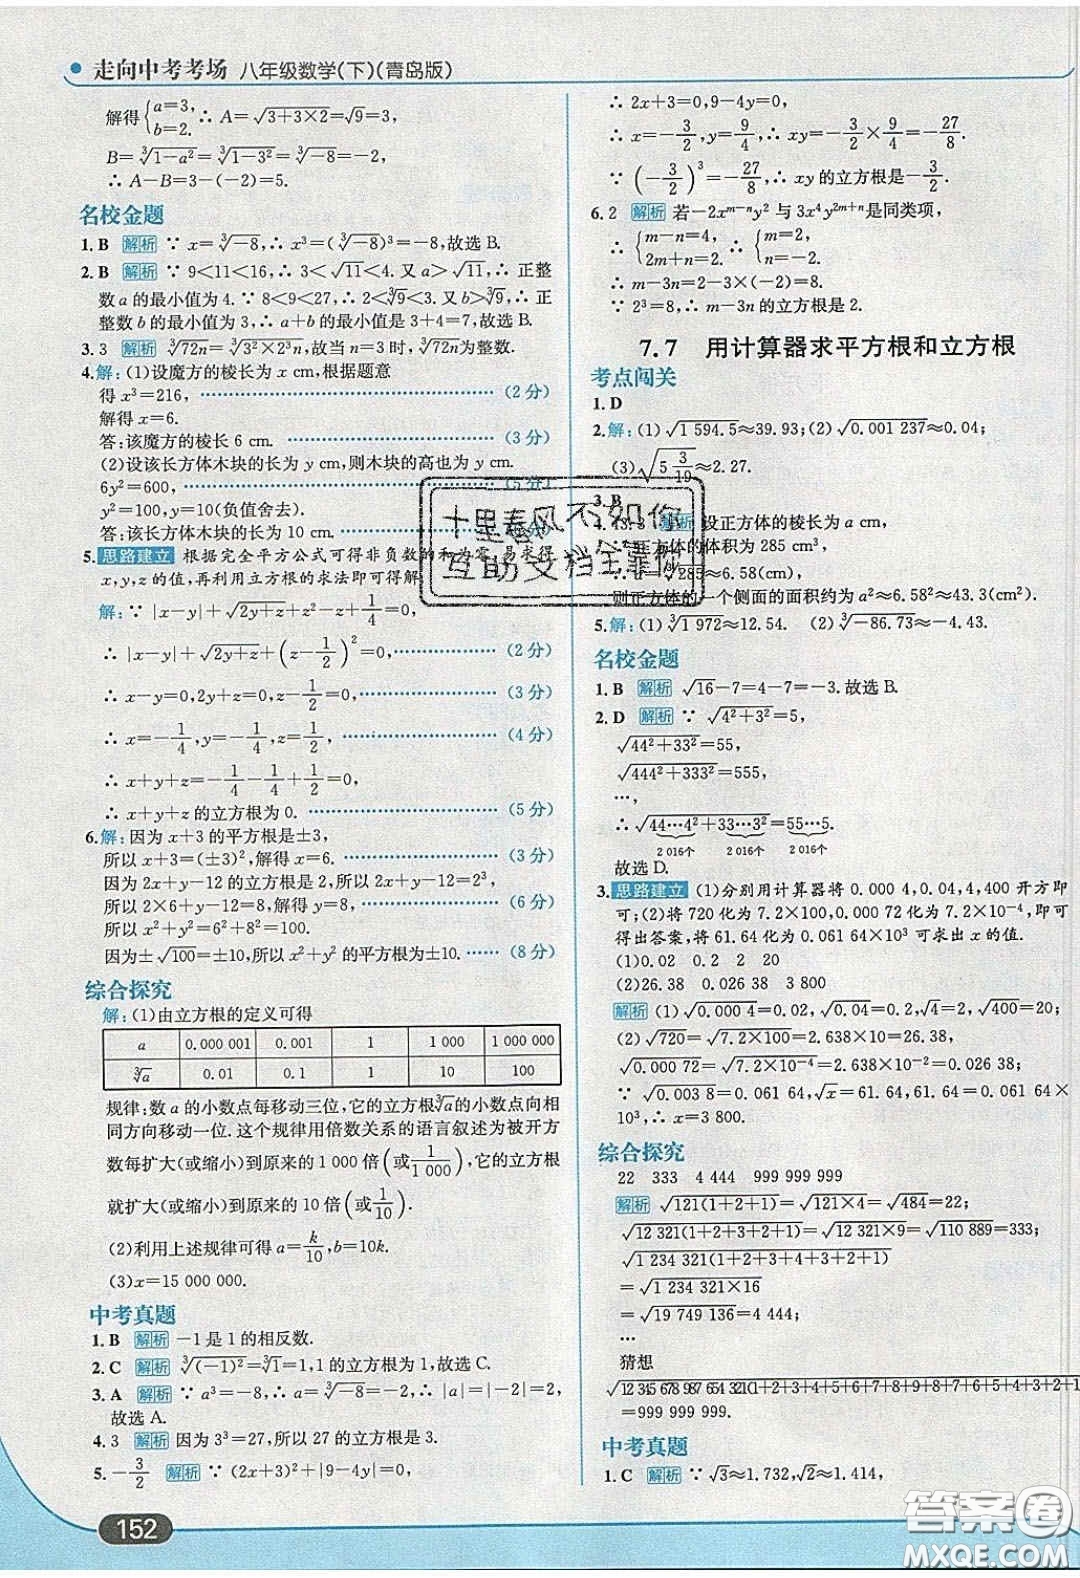 走向中考考场 八年级数学(下)(青岛版)
解得{a=3, b=2. ∴A=√(3+3×2)=√9=3,
B=∛(1-a²)=∛(1-3²)=∛-8=-2,
∴A-B=3-(-2)=5.
名校金题
1.B 解析 ∵x=∛-8,∴x³=(∛-8)³=-8,故选B.
2.B 解析 ∵9<11<16,∴3<√11<4.又a>√11,∴正整
数a的最小值为4.∵8<9<27,∴2<∛9<3.又b>∛9,∴正
整数b的最小值为3,∴a+b的最小值是3+4=7,故选B.
3.3 解析 ∛72n=∛(3²×2³n),故当n=3时,∛72n为整数.
4.解:(1)设魔方的棱长为x cm,根据题意
得x³=216, (2分)
解得x=6.
答:该魔方的棱长6 cm. (3分)
(2)设该长方体木块的长为y cm,则木块的高也为y cm.
6y²=600, (5分)
y²=100,y=10(负值舍去).
答:该长方体木块的长为10 cm.
5.思路建立 根据完全平方公式可得非负数的和为零,易求得
x,y,z的值,再利用立方根的求法即可得解.
解:∵|x-y|+√(2y+z)+z²-z+1/4=0,
∴|x-y|+√(2y+z)+(z-1/2)²=0, (2分)
∴x-y=0,2y+z=0,z-1/2=0, (3分)
∴x=-1/4,y=-1/4,z=1/2, (4分)
∴x+y+z=-1/4-1/4+1/2=0,
∴x+y+z的立方根为0. (5分)
6.解:因为x+3的平方根是±3,
所以x+3=(±3)²,解得x=6. (3分)
因为2x+y-12的立方根是2,所以2x+y-12=2³,
所以2×6+y-12=8,解得y=8, (6分)
所以x²+y²=6²+8²=100.
因为±√100=±10,所以x²+y²的平方根为±10. (8分)
综合探究
解:(1)由立方根的定义可得
a 0.000 001 0.001 1 1 000 1 000 000
∛a 0.01 0.1 1 10 100
规律:数a的小数点每移动三位,它的立方根∛a的小数点向相
同方向移动一位.这个规律用倍数关系的语言叙述为被开方
数每扩大(或缩小)到原来的1 000倍(或1/1 000),它的立方根
就扩大(或缩小)到原来的10倍(或1/10).
(2)利用上述规律可得a=k/10,b=10k.
(3)x=15 000 000.
中考真题
1.B 解析 -1是1的相反数.
2.C 解析 ∛(-1)²=∛1=1,1的立方根是1,故选C.
3.A 解析 ∵a³=-8,∴a=∛-8=-2,∴|a|=|-2|=2,
故选A.
4.3 解析 因为3³=27,所以27的立方根是3.
5.-3/2 解析 ∵(2x+3)²+|9-4y|=0,
152
∴2x+3=0,9-4y=0,
∴x=-3/2,y=9/4,∴xy=-3/2×9/4=-27/8.
∵(-3/2)³=-27/8,∴xy的立方根是-3/2.
6.2 解析 若-2xᵐ⁻ⁿy²与3x⁴y²ᵐ⁺ⁿ是同类项,
∴{m-n=4, 2m+n=2. ∴{m=2, n=-2.
∴m-3n=2-3×(-2)=8.
∵2³=8,∴m-3n的立方根是2.
7.7 用计算器求平方根和立方根
考点闯关
1.D
2.解:(1)√1 594.5≈39.93;(2)√0.001 237≈0.04;
(3)√(5 3/19)≈2.27.
3.B
4.43.3 解析 设正方体的棱长为a cm,
∵正方体的体积为285 cm³,
∴a=∛285≈6.58(cm),
则正方体的一个侧面的面积约为a²≈6.58²≈43.3(cm²).
5.解:(1)∛1 972≈12.54. (2)∛-86.73≈-4.43.
名校金题
1.B 解析 √16-7=4-7=-3.故选B.
2.D 解析 ∵√(4²+3²)=5,
√(44²+33²)=55,
√(444²+333²)=555,
…,
∴√(44…4²+33…3²)=55…5.
2 016个 2 016个 2 016个
故选D.
3.思路建立 (1)分别用计算器将0.000 4,0.04,4,400开方即
可;(2)将720化为7.2×100,0.000 72化为7.2×10⁻⁴,即可
得出答案,将61.64化为0.061 64×10³可求出x的值.
(1)0.02 0.2 2 20
(2)26.38 0.026 38 3 800
解析 (1)√0.000 4=0.02,√0.04=0.2,√4=2,√400=20;
(2)√720=√(7.2×100)=2.638×10=26.38,
√0.000 72=√(7.2×10⁻⁴)=2.638×10⁻²=0.026 38;
∵√0.003 8=0.061 64,√x=61.64,61.64=0.061 64×
10³,∴x=3 800.
综合探究
22 333 4 444 999 999 999
解析 √121(1+2+1)=√(121×4)=√484=22;
√12 321(1+2+3+2+1)=√(12 321×9)=√110 889=333;
√1 234 321(1+2+3+4+3+2+1)
=√(1 234 321×16)
=√19 749 136=4 444;
…
猜想
√12 345 678 987 654 321(1+2+3+4+5+6+7+8+9+8+7+6+5+4+3+2+1
=999 999 999.
中考真题
1.C 解析 ∵√3≈1.732,√2≈1.414,
十里春风不如你
互助文档全靠你
答案圈
MXQE.COM